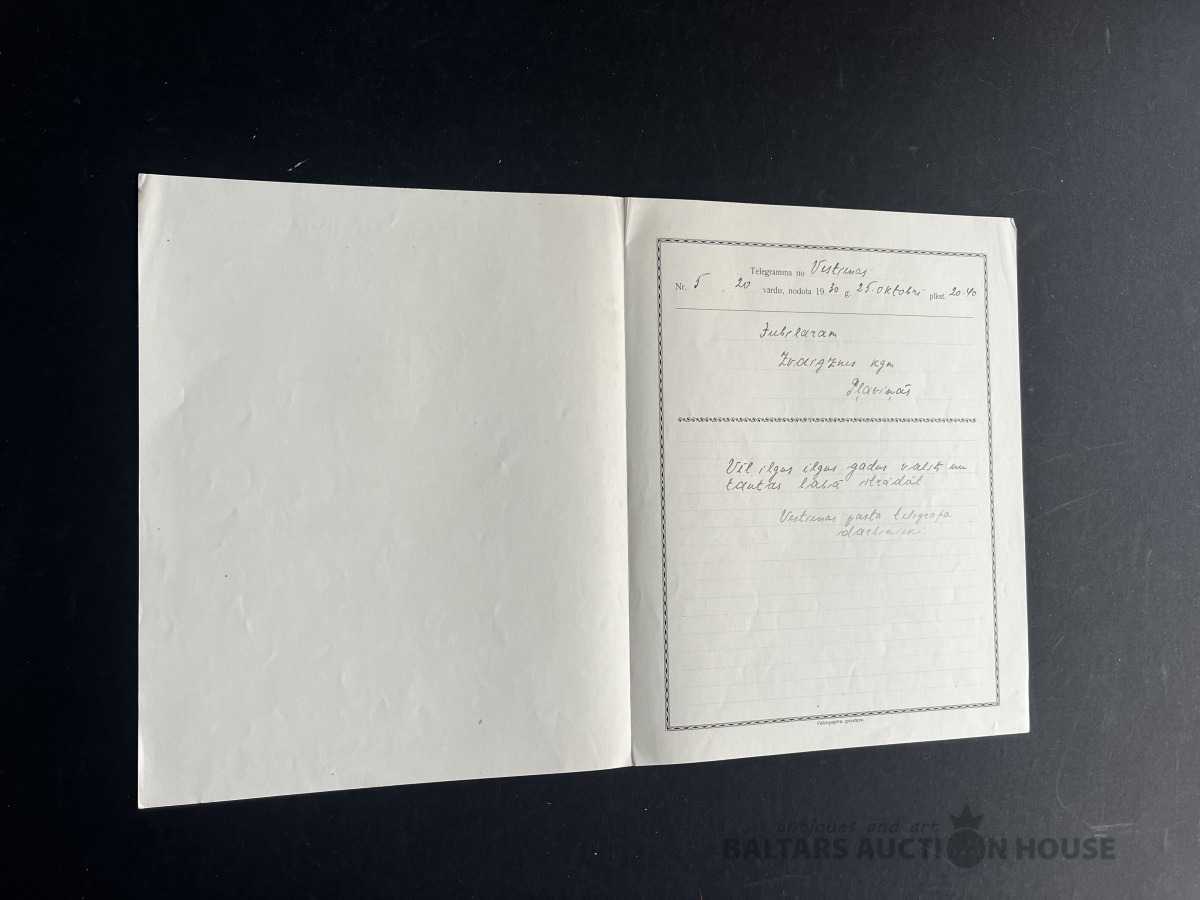 Telegramma no Vestienas
Nr. 5 , 20 vārdu, nodota 19 30 g. 25. oktobrī plkst. 20.40
Jubilāram
Zvaigznes kgm
Pļaviņās
Vēl ilgus ilgus gadus valsts un
tautas labā strādāt
Vestienas pasta telegrafa
darbinieki.
Valstspapīru spiestuve.
antiques and art
BALTARS AUCTION HOUSE